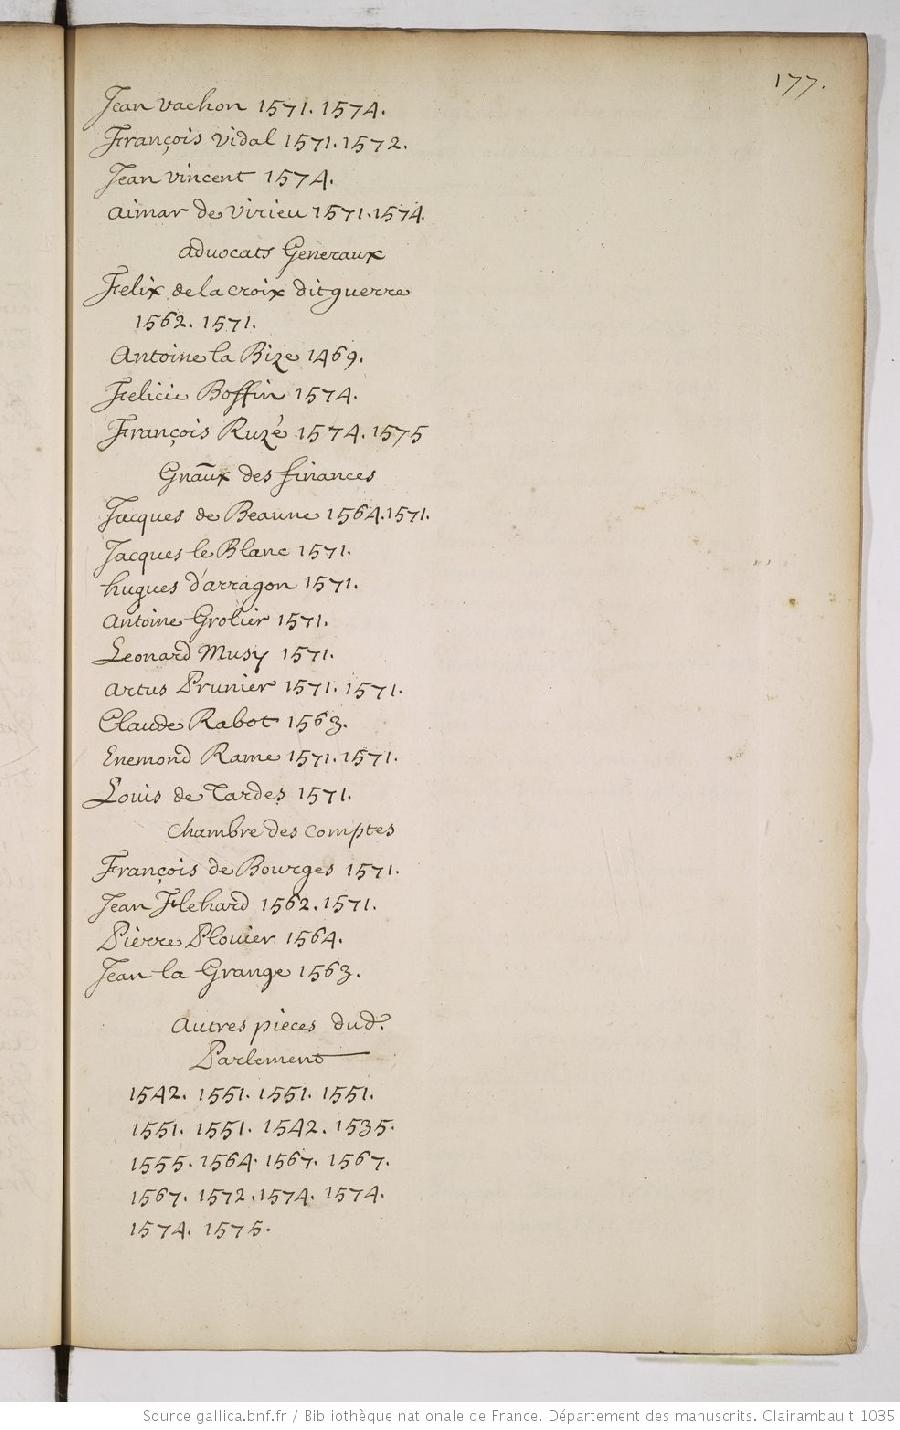 177.
Jean vachon 1571. 1574.
François vidal 1571. 1572.
Jean vincent 1574.
aimar de virieu 1571. 1574
advocats Generaux
Felix de la croix dit guerre
1562. 1571.
Antoine la Bize 1469.
Felicie Boffin 1574.
François Ruzé 1574. 1575
Gnãux des finances
Jacques de Beaune 1564. 1571.
Jacques le Blanc 1571.
hugues d'arragon 1571.
antoine Grolier 1571.
Leonard Musy 1571.
artus Prunier 1571. 1571.
Claude Rabot 1563.
Enemond Rame 1571. 1571.
Louis de Tardes 1571.
Chambre des comptes
François de Bourges 1571.
Jean Flehard 1562. 1571.
Pierre Plouier 1564.
Jean la Grange 1563.
autres pieces dud.
Parlement
1542. 1551. 1551. 1551.
1551. 1551. 1542. 1535.
1555. 1564. 1567. 1567.
1567. 1572. 1574. 1574.
1574. 1575.
Source gallica.bnf.fr / Bibliothèque nationale de France. Département des manuscrits. Clairambault 1035